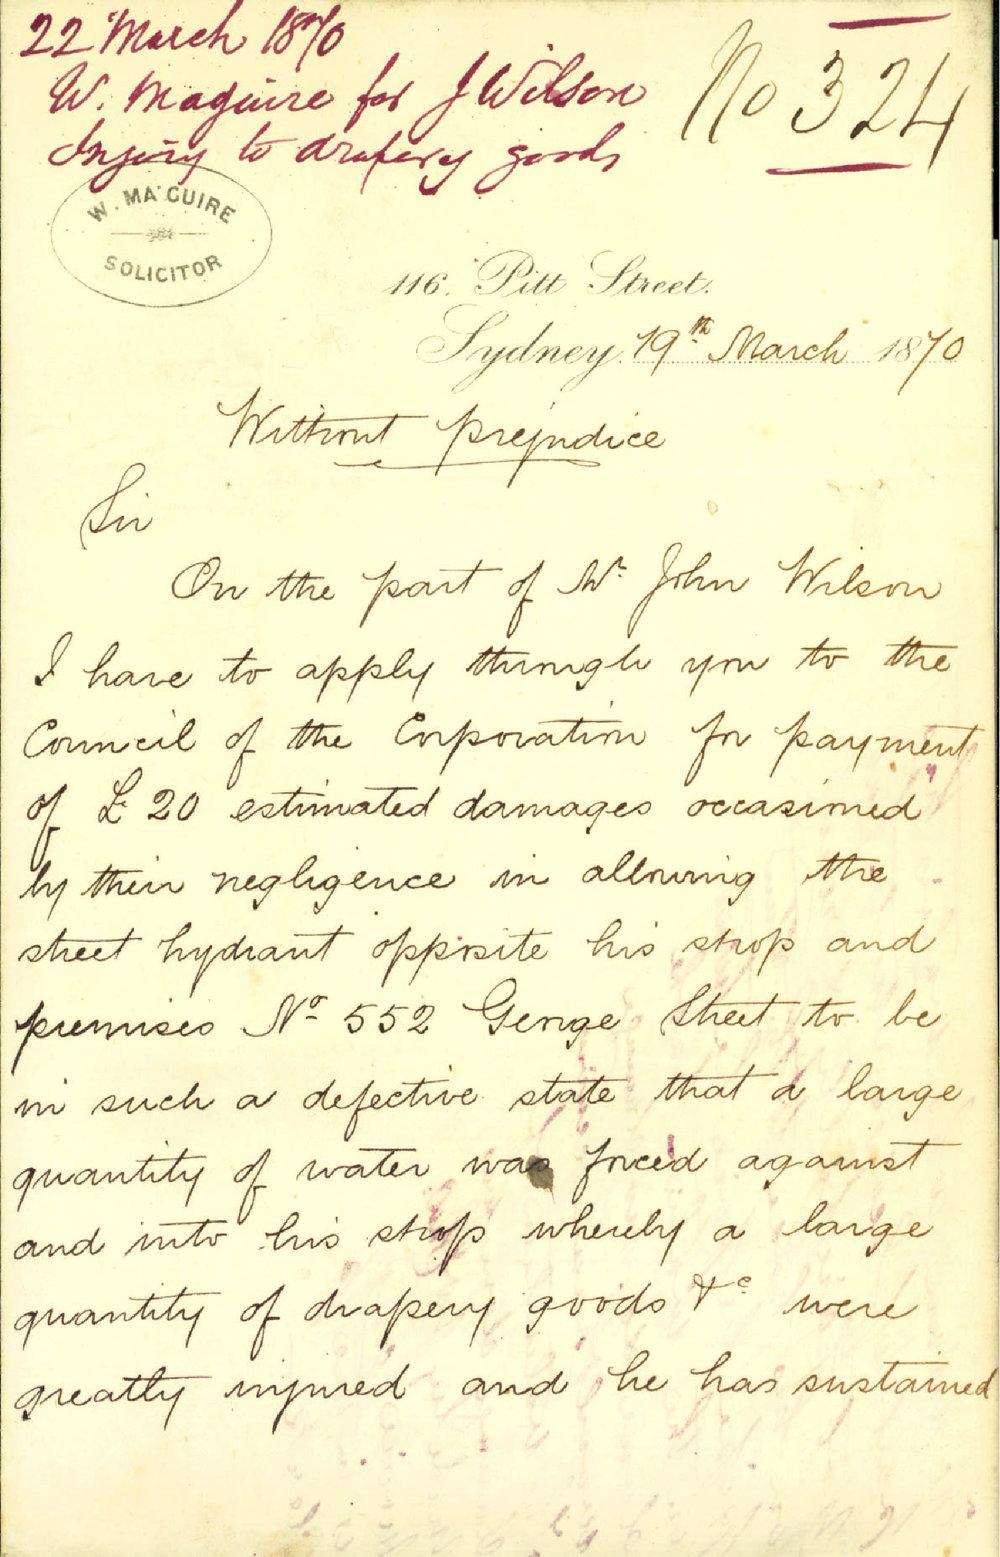 22 March 1870
W. Maguire for J Wilson
Injury to drapery goods
No 324
W. MAGUIRE
SOLICITOR
116. Pitt Street.
Sydney. 19th March 1870
Without prejudice
Sir
On the part of Mr. John Wilson
I have to apply through you to the
Council of the Corporation for payment
of £20 estimated damages occasioned
by their negligence in allowing the
street hydrant opposite his shop and
premises No. 552 George Street to be
in such a defective state that a large
quantity of water was forced against
and into his shop whereby a large
quantity of drapery goods &c were
greatly injured and he has sustained